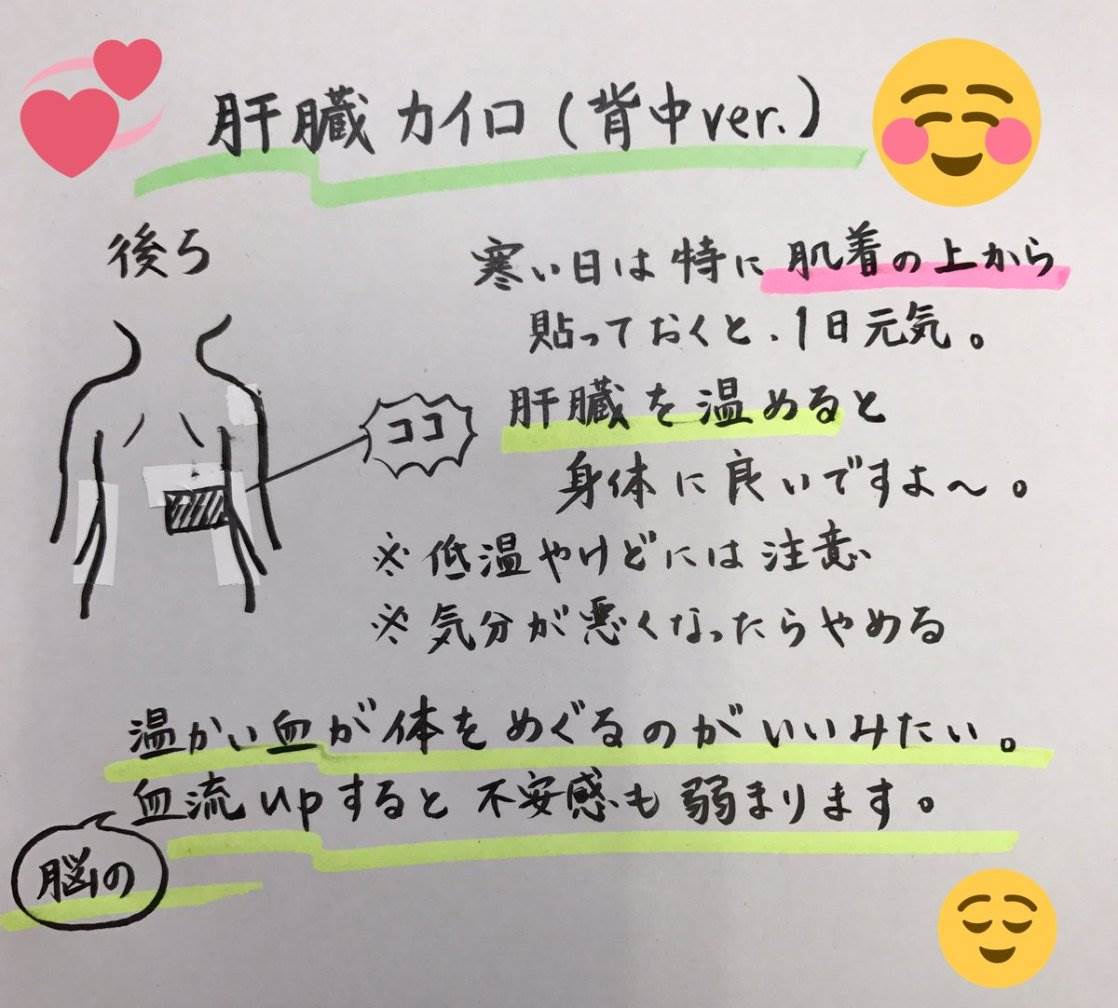 肝臓カイロ(背中ver.)
後ろ
寒い日は特に肌着の上から
貼っておくと、1日元気。
ココ
肝臓を温めると
身体に良いですよ〜。
※低温やけどには注意
※気分が悪くなったらやめる
温かい血が体をめぐるのがいいみたい。
血流upすると不安感も弱まります。
脳の